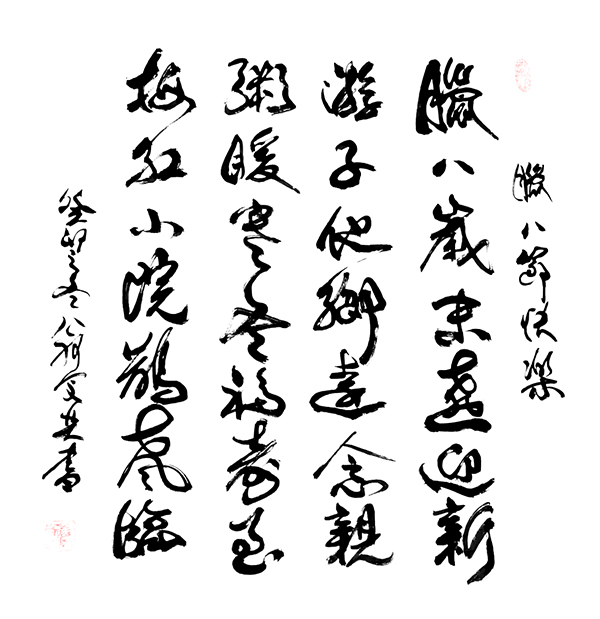 臘八節快樂
臘八歲末迎新
游子他鄉遠念親
粥暖寒冬福壽至
梅紅小院鵲臨
癸卯之冬書